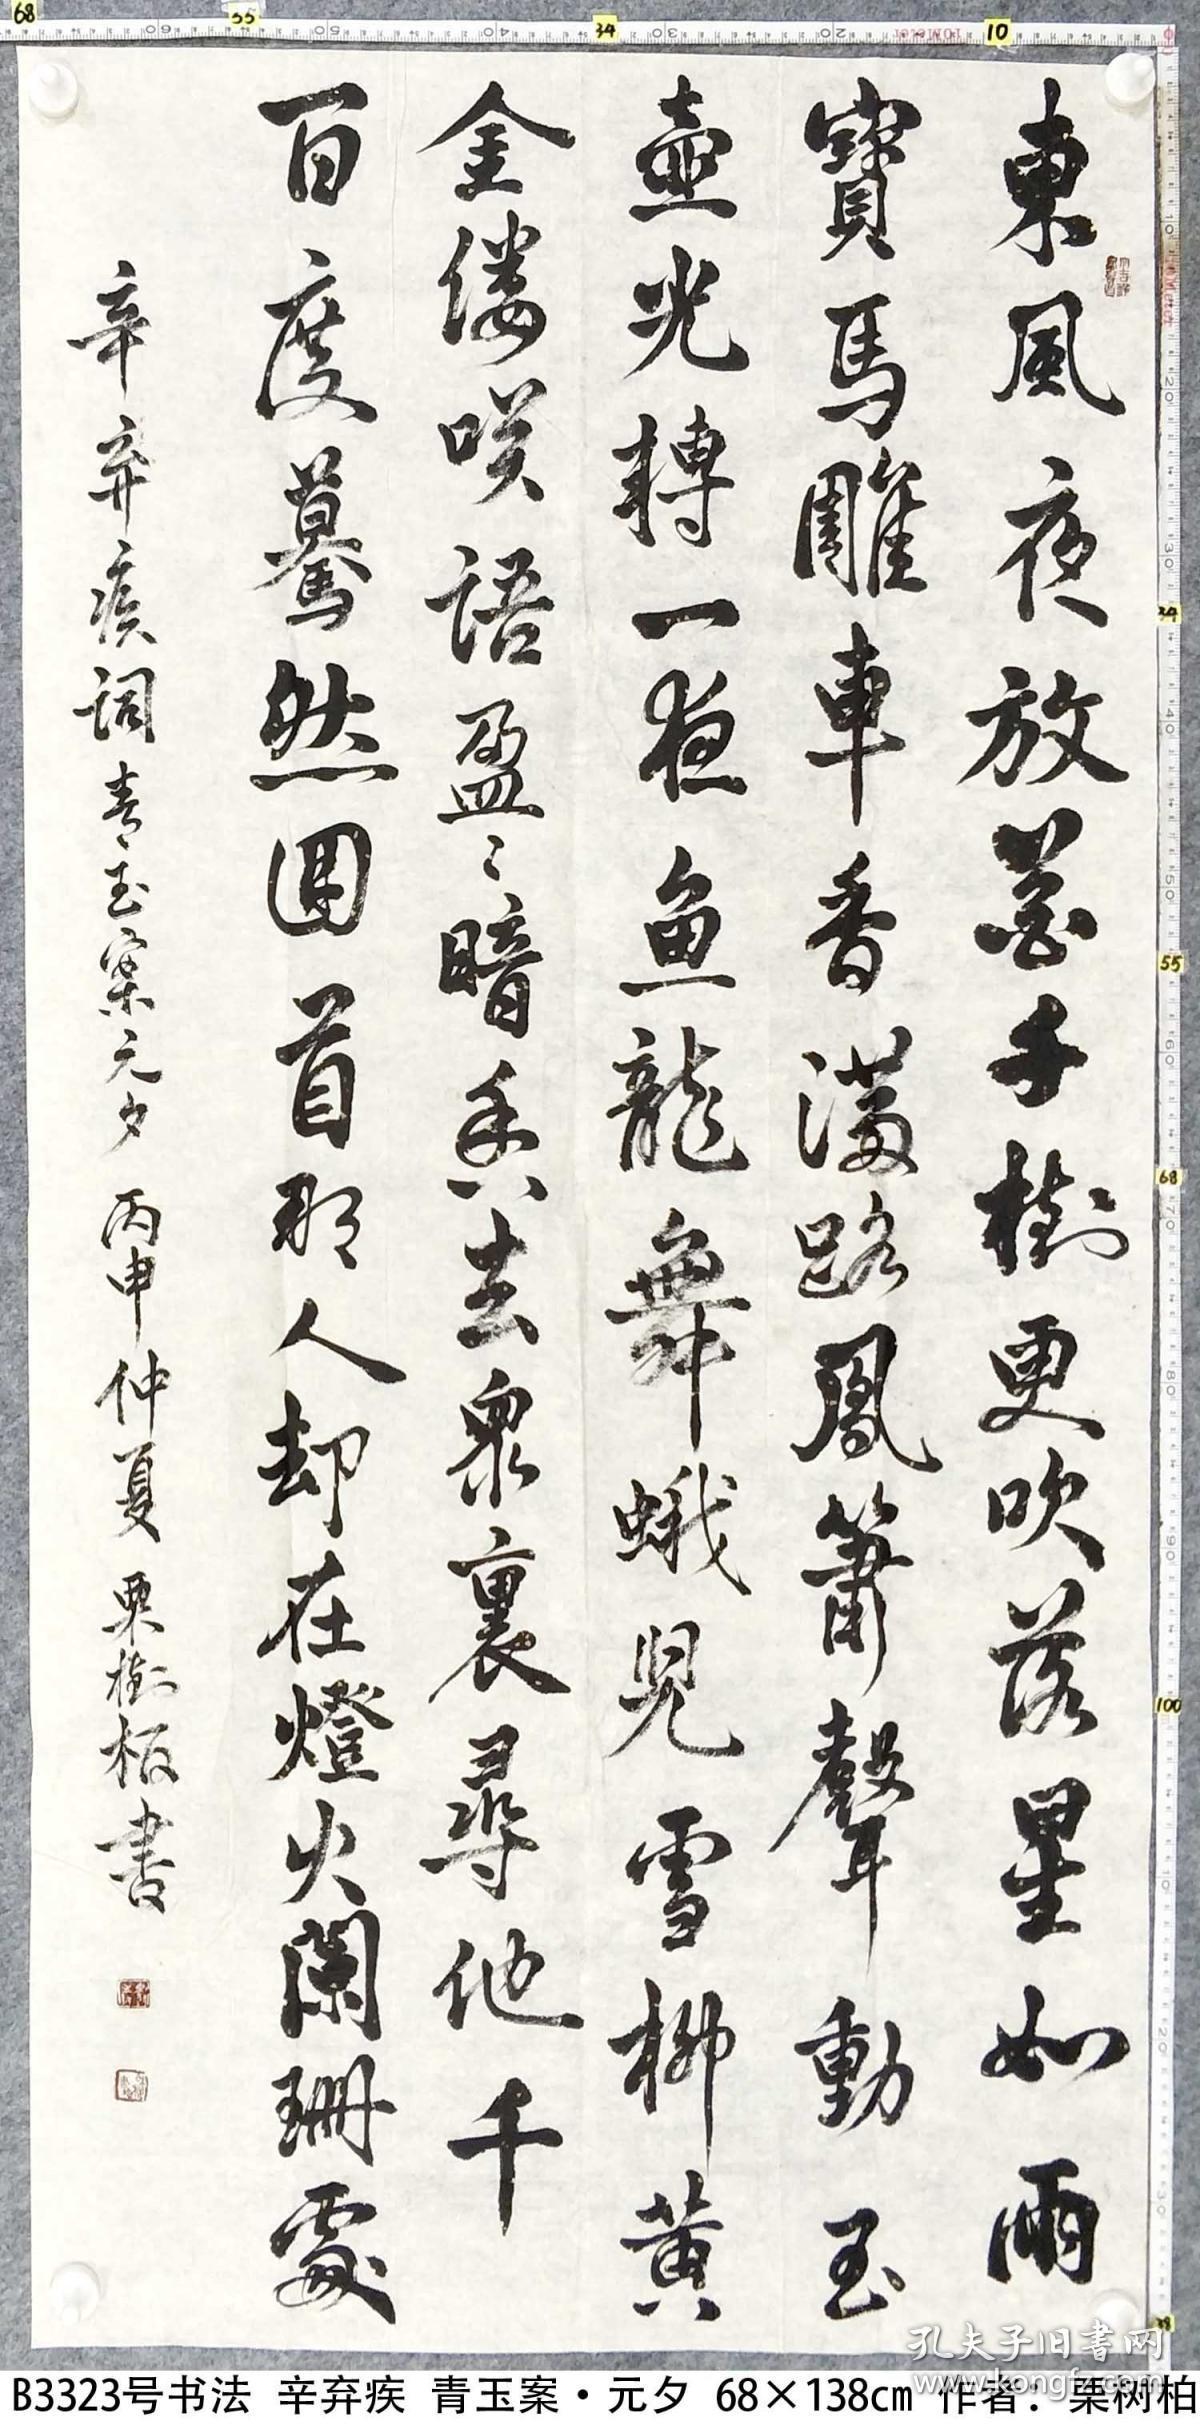 68 55 34 10
東風夜放花千樹更吹落星如雨
寶馬雕車香滿路鳳簫聲動玉
壺光轉一夜魚龍舞蛾兒雪柳黄
金縷咲語盈〻暗香去衆裏尋他千
百度驀然回首那人却在燈火闌珊處
辛弃疾詞青玉案元夕 丙申仲夏 栗樹柏書
34
55
68
100
孔夫子旧书网
www.kongfz.com
B3323号书法 辛弃疾 青玉案·元夕 68×138cm 作者：栗树柏